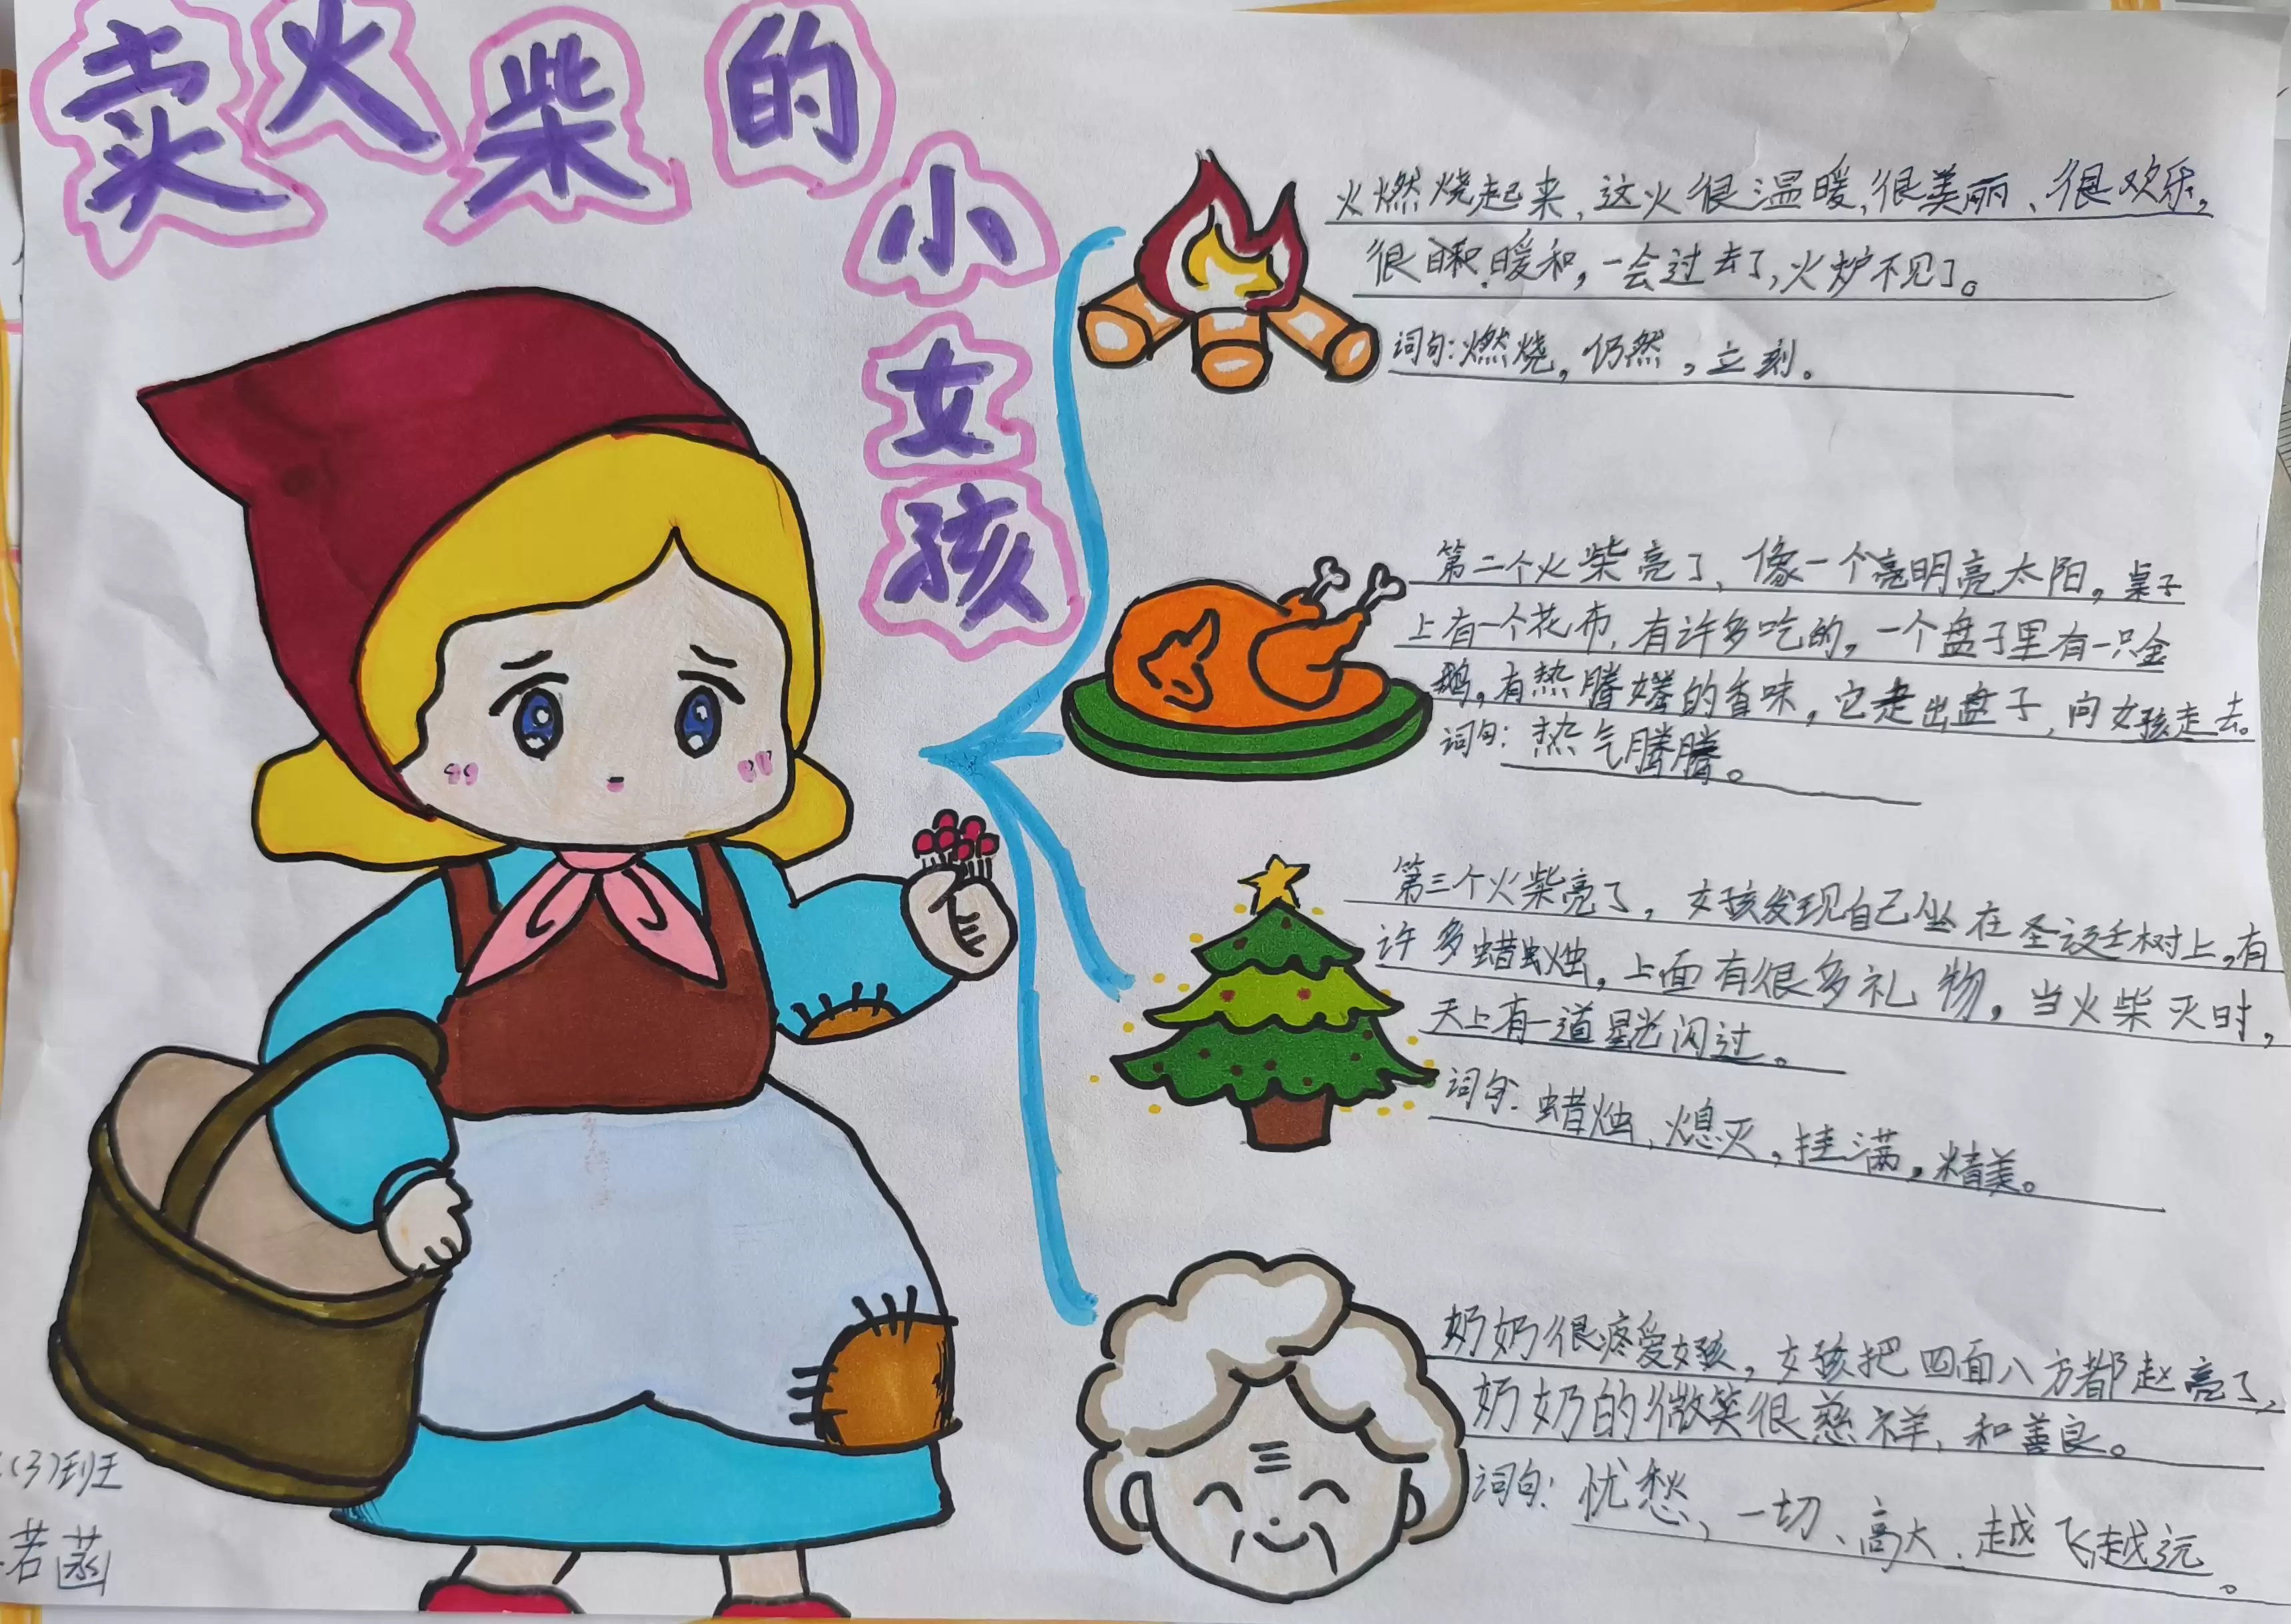 卖火柴的
小女孩
火燃烧起来、这火很温暖,很美丽、很欢乐,
很暖和,一会过去了,火炉不见了。
词句:燃烧,仍然,立刻。
第二个火柴亮了、像一个亮明亮太阳。桌子
上有一个花布,有许多吃的。一个盘子里有一只金
鹅,有热腾的香味,它走出盘子,向女孩走去。
词句:热气腾腾。
第三个火柴亮了,女孩发现自己坐在圣诞树上,有
许多蜡烛,上面有很多礼物。当火柴灭时,
天上有一道星光闪过。
词句:蜡烛、熄灭,挂满,精美。
奶奶很疼爱女孩,女孩把四面八方都赵亮了,
奶奶的微笑很慈祥、和善良。
词句:忧愁、一切、高大、越飞越远。
(3)班
若菡